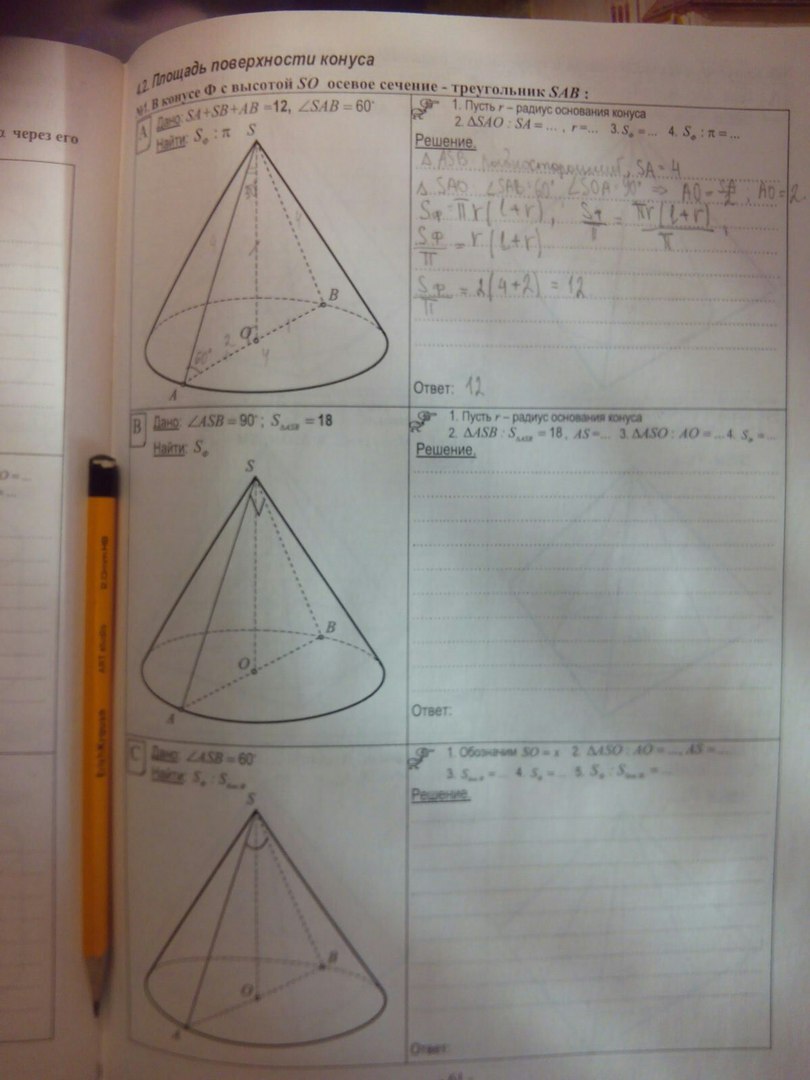 α через его
4.2. Площадь поверхности конуса
№1. В конусе Ф с высотой SO осевое сечение - треугольник SAB :
A
Дано: SA+SB+AB=12, ∠SAB=60°
Найти: S_Ф : π
S
4
4
B
O
2
60°
4
A
1. Пусть r – радиус основания конуса
2. ΔSAO : SA=... , r=... 3. S_Ф=... 4. S_Ф : π=...
Решение.
Δ ASB равносторонний, SA=4
Δ SAO ∠SAB=60° ∠SOA=90° ⇒ AO=SA/2; AO=2
S_Ф=πr(l+r), S_Ф/π = πr(l+r)/π,
S_Ф/π = r(l+r)
S_Ф/π = 2(4+2) = 12
Ответ: 12
B
Дано: ∠ASB=90°; S_ΔASB=18
Найти: S_Ф
S
B
O
A
1. Пусть r – радиус основания конуса
2. ΔASB : S_ΔASB=18, AS=... 3. ΔASO : AO=... 4. S_Ф=...
Решение.
Ответ:
C
Дано: ∠ASB=60°
Найти: S_Ф : S_бок.Ф
S
B
O
A
1. Обозначим SO=x 2. ΔASO : AO=..., AS=...
3. S_бок.Ф=... 4. S_Ф=... 5. S_Ф : S_бок.Ф=...
Решение.
Ответ:
ART studio